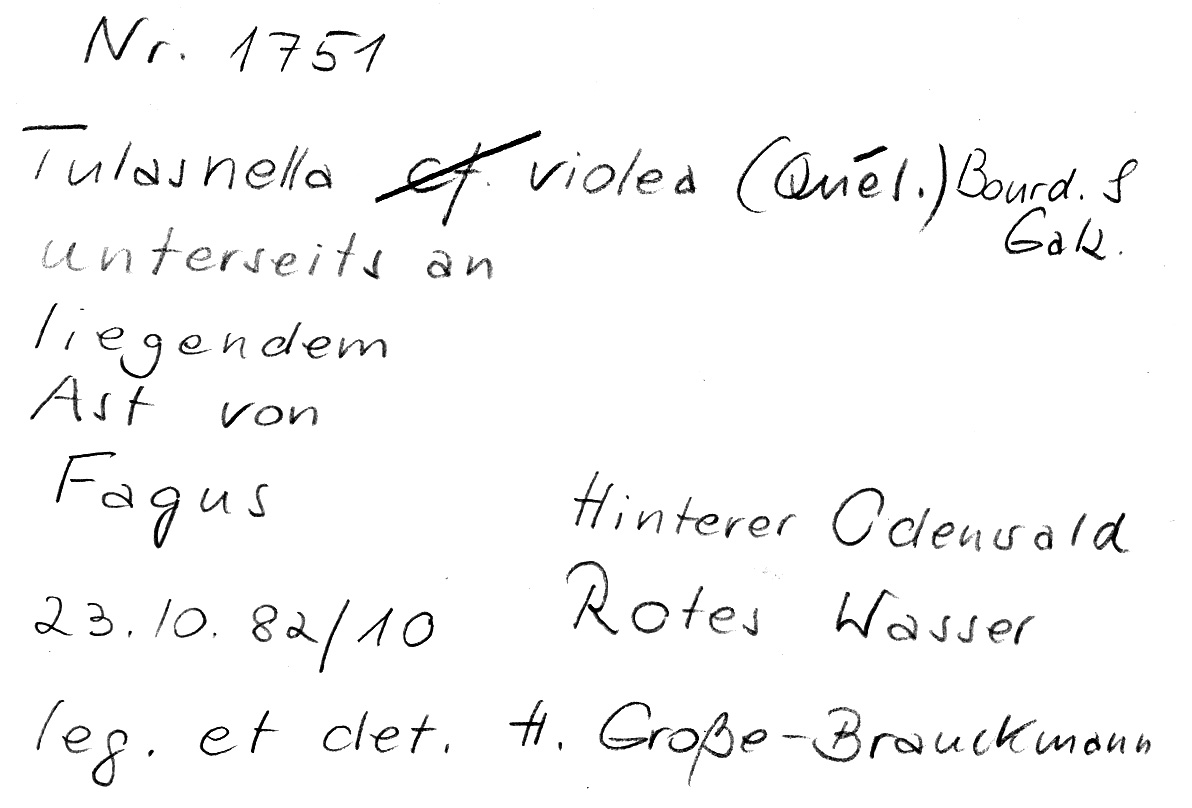 Nr. 1751
Tulasnella cf. violea (Quél.) Bourd. & Galz.
unterseits an
liegendem
Ast von
Fagus
Hinterer Odenwald
Rotes Wasser
23.10.82/10
leg. et det. H. Große-Brauckmann